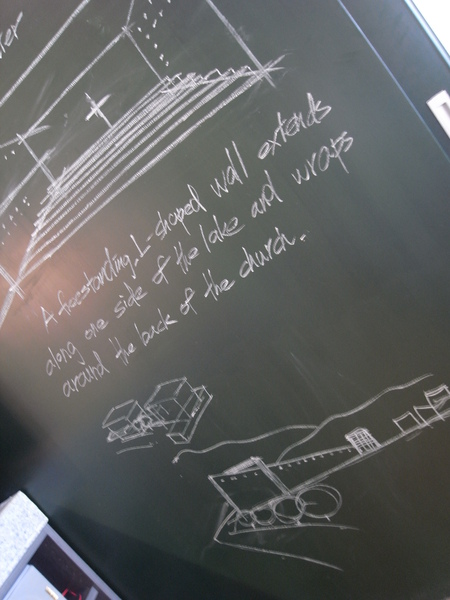 A freestanding, L-shaped wall extends
along one side of the lake and wraps
around the back of the church.